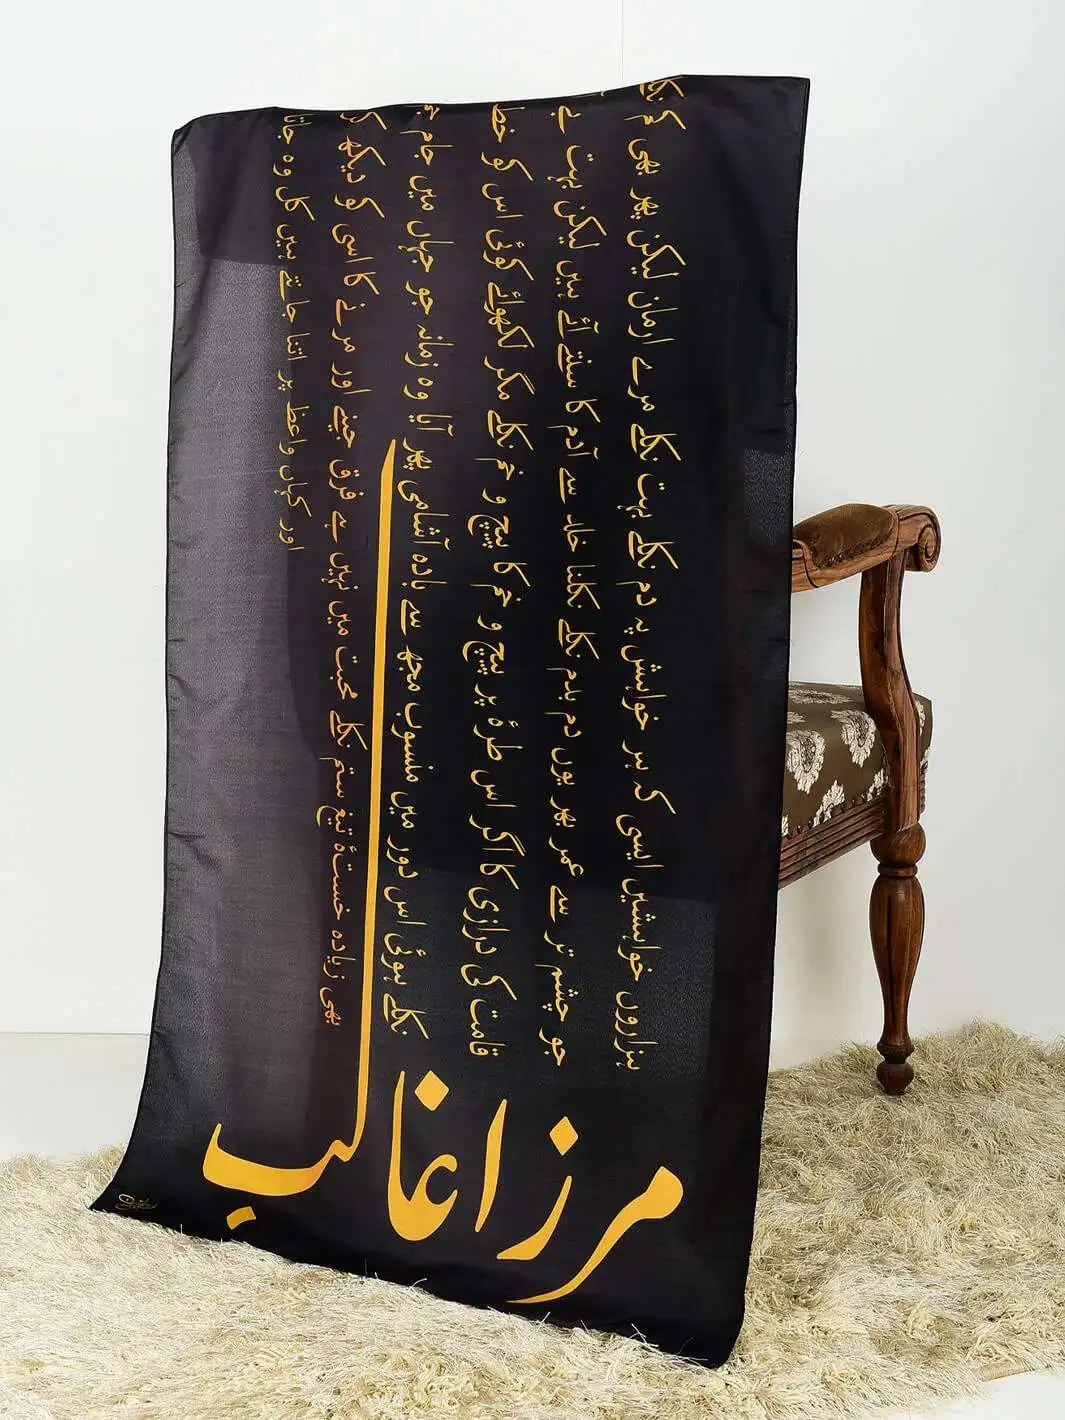 ہزاروں خواہشیں ایسی کہ ہر خواہش پہ دم نکلے بہت نکلے مرے ارمان لیکن پھر بھی کم
جو چشم تر سے عمر بھر یوں دم بدم نکلے نکلنا خلد سے آدم کا سنتے آئے ہیں لیکن بہت بے
قامت کی درازی کا اگر اس طرۂ پر پیچ و خم کا پیچ و خم نکلے مگر لکھوائے کوئی اس کو خط
نکلے ہوئی اس دور میں منسوب مجھ سے بادہ آشامی پھر آیا وہ زمانہ جو جہاں میں جام
بھی زیادہ خستۂ تیغ ستم نکلے محبت میں نہیں ہے فرق جینے اور مرنے کا اسی کو دیکھ
اور کہاں واعظ پر اتنا جانتے ہیں کل وہ جاتا
مرزا غالب